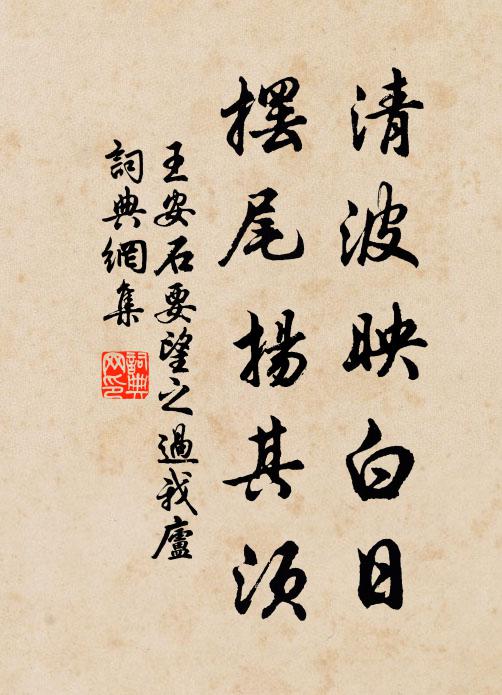 清波映白日
擺尾揚其須
王安石要望之過我廬
詞典網集
詞典
网印